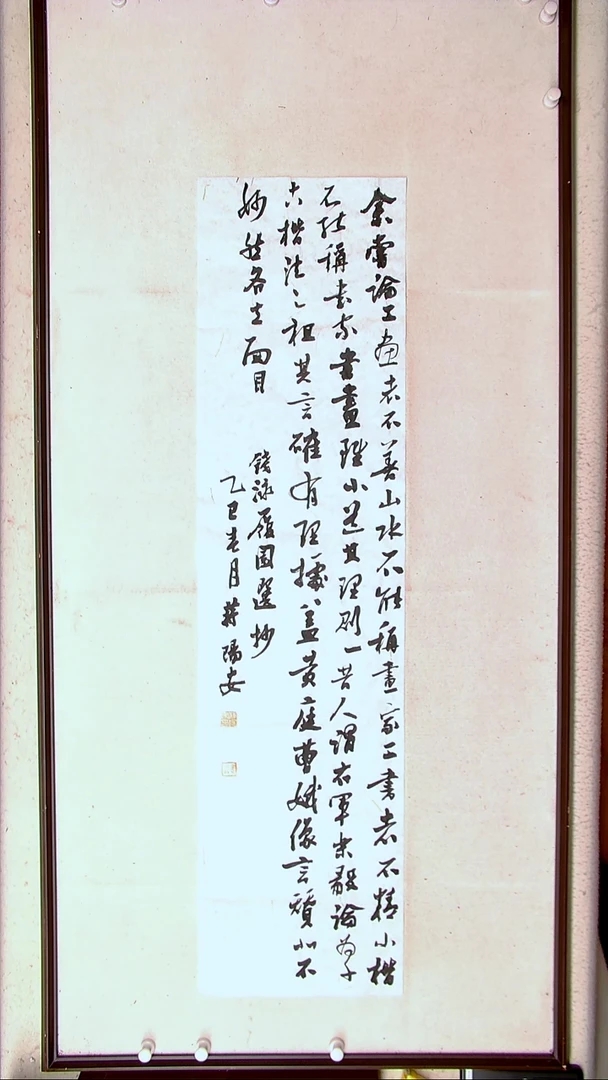 余嘗論工画者不善山水不能稱畫家工書者不精小楷
不能稱書家書畫雖小道其理則一昔人謂右軍樂毅論為千
古楷法之祖其言確有理據蓋黃庭曹娥像言贊非不
妙然各立面目
錢泳履園選抄
乙巳春月蔣陽安